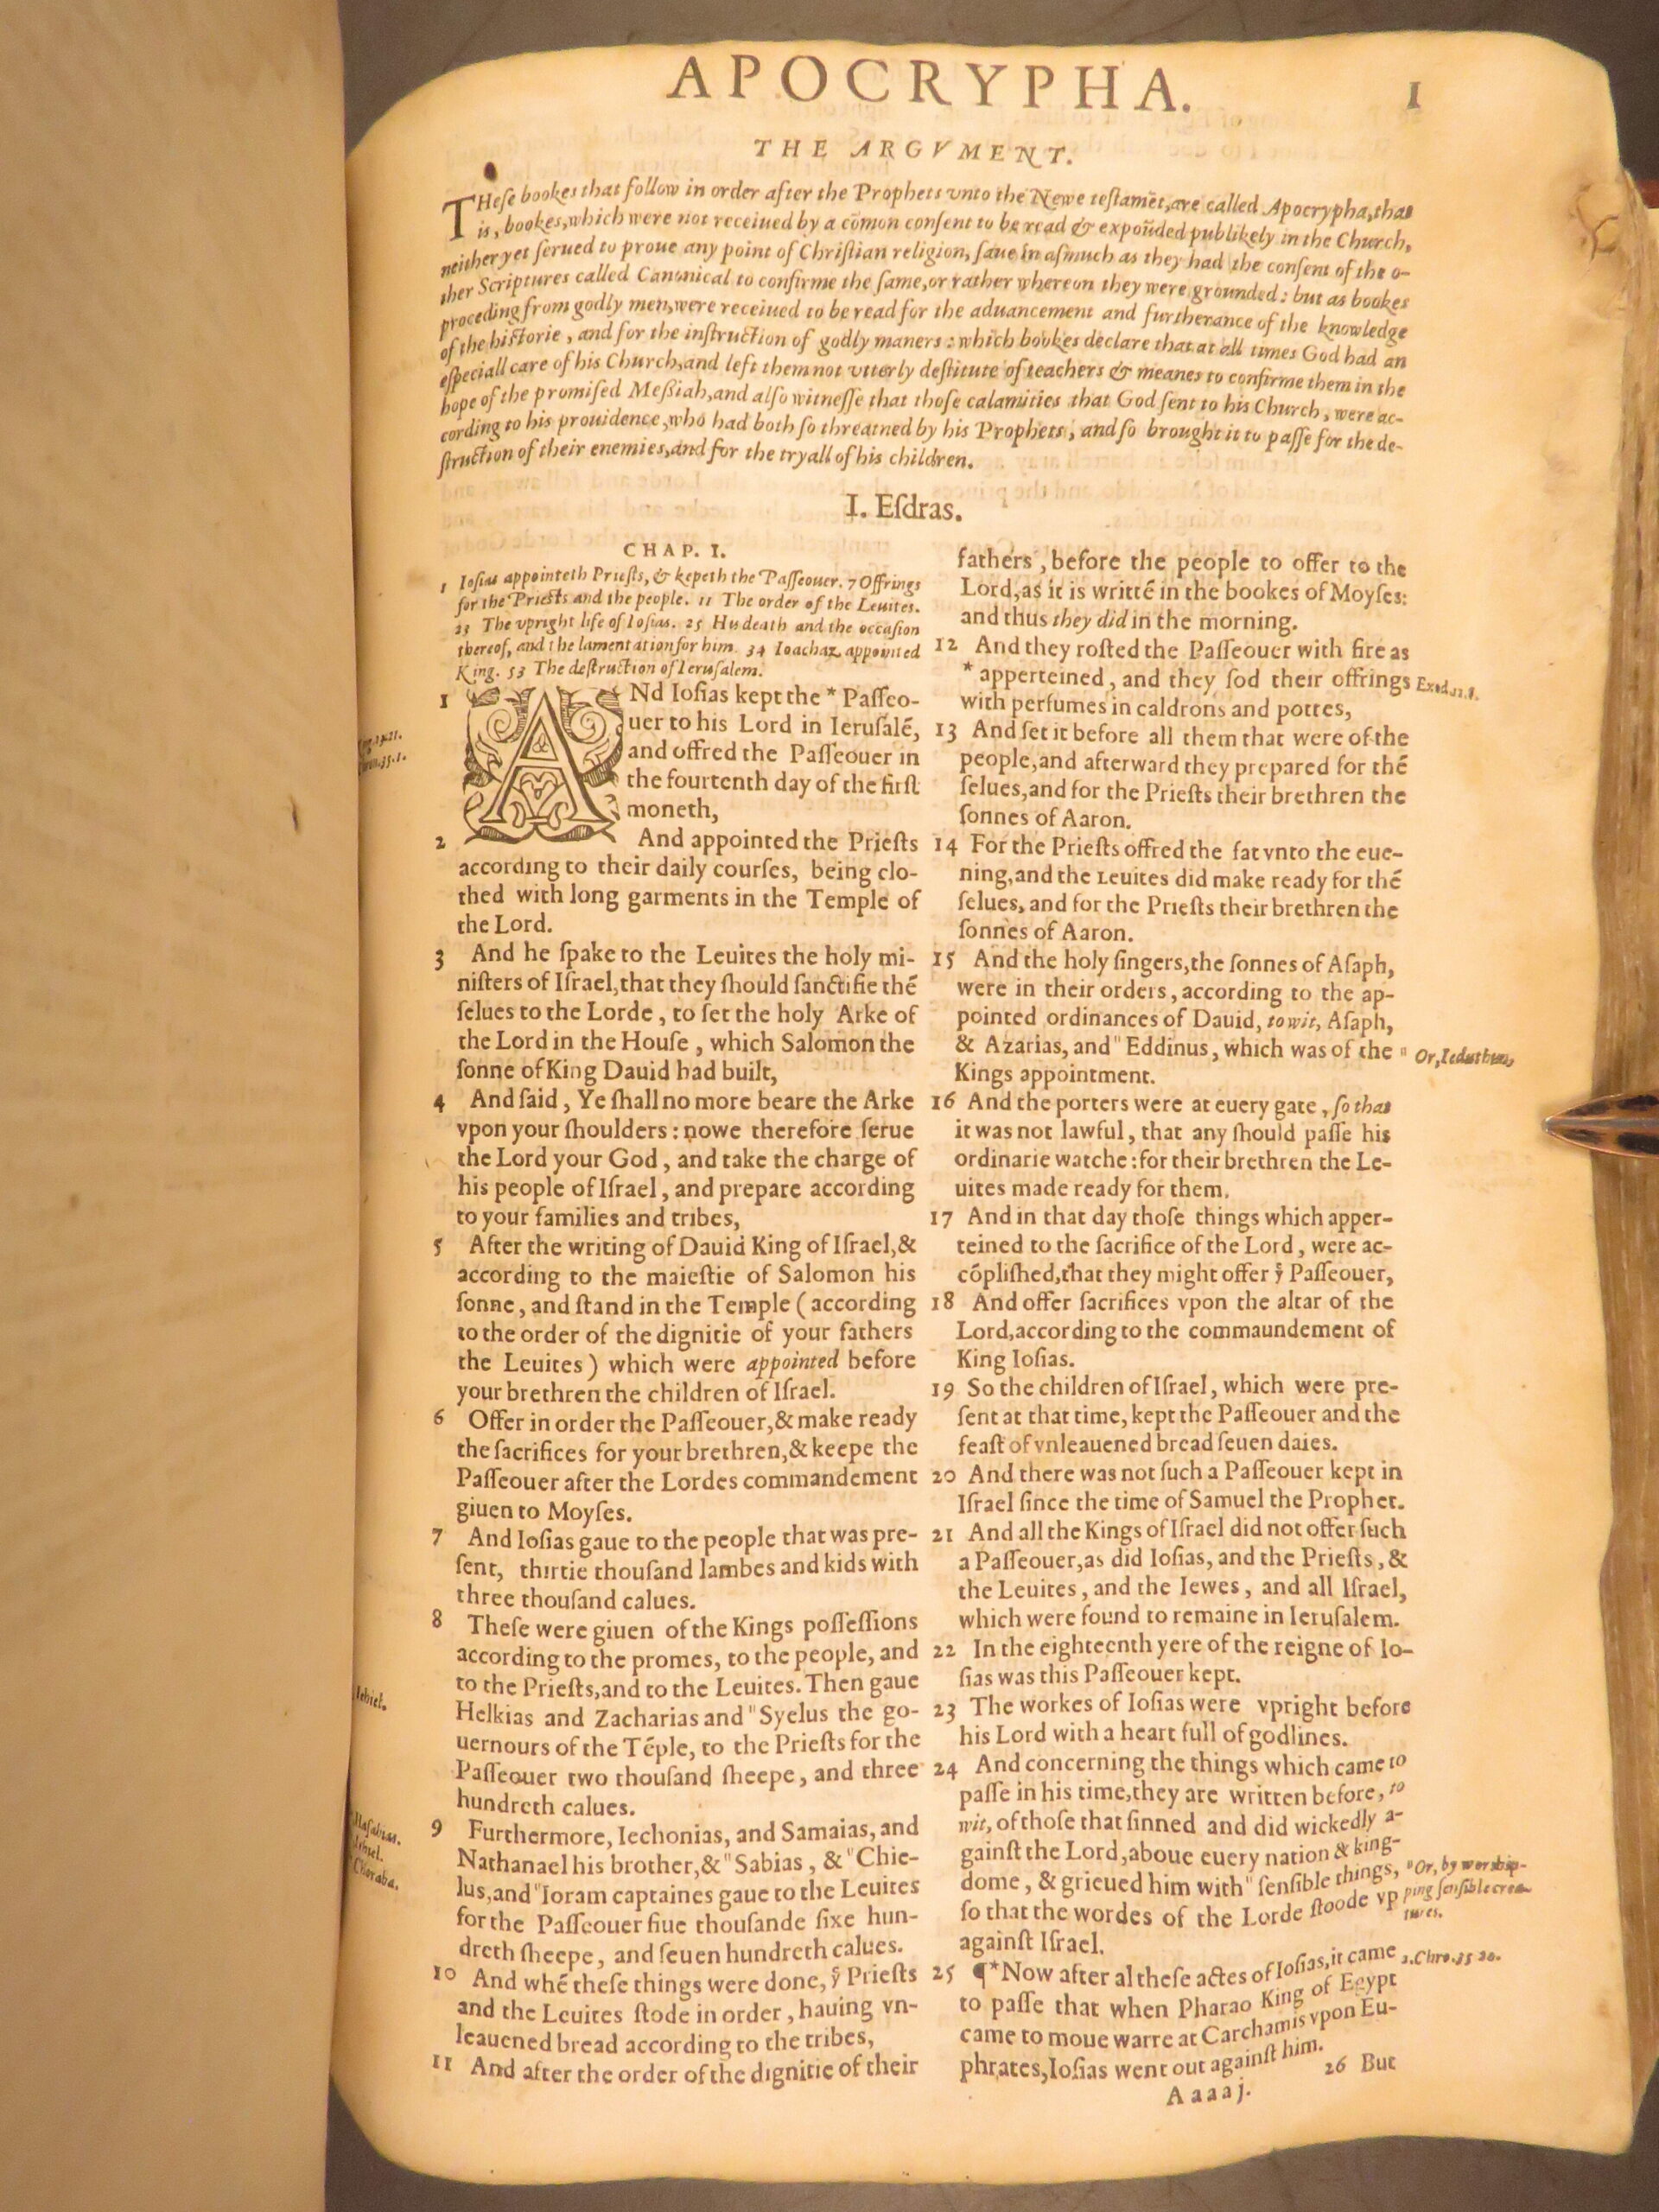 APOCRYPHA. 1
THE ARGVMENT.
THeſe bookes that follow in order after the Prophets vnto the Newe teſtamēt,are called Apocrypha,that
is, bookes,which were not receiued by a cōmon conſent to be read & expoūded publikely in the Church,
neither yet ſerued to proue any point of Chriſtian religion, ſaue in aſmuch as they had the conſent of the o-
ther Scriptures called Canonical to confirme the ſame,or rather whereon they were grounded: but as bookes
proceding from godly men,were receiued to be read for the aduancement and furtherance of the knowledge
of the hiſtorie, and for the inſtruction of godly maners: which bookes declare that at all times God had an
eſpeciall care of his Church,and left them not vtterly deſtitute of teachers & meanes to confirme them in the
hope of the promiſed Meßiah,and alſo witneſſe that thoſe calamities that God ſent to his Church, were ac-
cording to his prouidence,who had both ſo threatned by his Prophets, and ſo brought it to paſſe for the de-
ſtruction of their enemies,and for the tryall of his children.
I. Eſdras.
CHAP. I.
1 Ioſias appointeth Prieſts,& kepeth the Paſſeouer. 7 Offrings
for the Prieſts and the people. 11 The order of the Leuites.
23 The vpright life of Ioſias. 25 His death and the occaſion
thereof, and the lamentation for him. 34 Ioachaz appointed
King. 53 The deſtruction of Ieruſalem.
1 ANd Ioſias kept the * Paſſeo-
uer to his Lord in Ieruſalē,
and offred the Paſſeouer in
the fourtenth day of the firſt
moneth,
2 And appointed the Prieſts
according to their daily courſes, being clo-
thed with long garments in the Temple of
the Lord.
3 And he ſpake to the Leuites the holy mi-
niſters of Iſrael,that they ſhould ſanctifie thē
ſelues to the Lorde, to ſet the holy Arke of
the Lord in the Houſe, which Salomon the
ſonne of King Dauid had built,
4 And ſaid, Ye ſhall no more beare the Arke
vpon your ſhoulders: nowe therefore ſerue
the Lord your God, and take the charge of
his people of Iſrael, and prepare according
to your families and tribes,
5 After the writing of Dauid King of Iſrael,&
according to the maieſtie of Salomon his
ſonne, and ſtand in the Temple (according
to the order of the dignitie of your fathers
the Leuites) which were appointed before
your brethren the children of Iſrael.
6 Offer in order the Paſſeouer,& make ready
the ſacrifices for your brethren,& keepe the
Paſſeouer after the Lordes commandement
giuen to Moyſes.
7 And Ioſias gaue to the people that was pre-
ſent, thirtie thouſand lambes and kids with
three thouſand calues.
8 Theſe were giuen of the Kings poſſeſſions
according to the promes, to the people, and
to the Prieſts,and to the Leuites. Then gaue
Helkias and Zacharias and "Syelus the go-
uernours of the Tēple, to the Prieſts for the
Paſſeouer two thouſand ſheepe, and three
hundreth calues.
9 Furthermore, Iechonias, and Samaias, and
Nathanael his brother,& "Sabias, & "Chie-
lus,and "Ioram captaines gaue to the Leuites
for the Paſſeouer fiue thouſande ſixe hun-
dreth ſheepe, and ſeuen hundreth calues.
10 And whē theſe things were done, yͤ Prieſts
and the Leuites ſtode in order, hauing vn-
leauened bread according to the tribes,
11 And after the order of the dignitie of their
Iehiel.
Haſabias.
Iehiel.
Choraba.
fathers, before the people to offer to the
Lord,as it is writtē in the bookes of Moyſes:
and thus they did in the morning.
12 And they roſted the Paſſeouer with fire as
* apperteined, and they ſod their offrings
with perfumes in caldrons and pottes,
13 And ſet it before all them that were of the
people,and afterward they prepared for thē
ſelues,and for the Prieſts their brethren the
ſonnes of Aaron.
14 For the Prieſts offred the fat vnto the eue-
ning,and the Leuites did make ready for thē
ſelues, and for the Prieſts their brethren the
ſonnes of Aaron.
15 And the holy ſingers,the ſonnes of Aſaph,
were in their orders, according to the ap-
pointed ordinances of Dauid, to wit, Aſaph,
& Azarias, and "Eddinus, which was of the
Kings appointment.
16 And the porters were at euery gate, ſo that
it was not lawful, that any ſhould paſſe his
ordinarie watche: for their brethren the Le-
uites made ready for them.
17 And in that day thoſe things which apper-
teined to the ſacrifice of the Lord, were ac-
cōpliſhed,that they might offer yͤ Paſſeouer,
18 And offer ſacrifices vpon the altar of the
Lord,according to the commaundement of
King Ioſias.
19 So the children of Iſrael, which were pre-
ſent at that time, kept the Paſſeouer and the
feaſt of vnleauened bread ſeuen daies.
20 And there was not ſuch a Paſſeouer kept in
Iſrael ſince the time of Samuel the Prophet.
21 And all the Kings of Iſrael did not offer ſuch
a Paſſeouer,as did Ioſias, and the Prieſts, &
the Leuites, and the Iewes, and all Iſrael,
which were found to remaine in Ieruſalem.
22 In the eighteenth yere of the reigne of Io-
ſias was this Paſſeouer kept.
23 The workes of Ioſias were vpright before
his Lord with a heart full of godlines.
24 And concerning the things which came to
paſſe in his time,they are written before, to
wit, of thoſe that ſinned and did wickedly a-
gainſt the Lord,aboue euery nation & king-
dome, & grieued him with "ſenſible things,
ſo that the wordes of the Lorde ſtoode vp
againſt Iſrael.
25 ¶*Now after al theſe actes of Ioſias,it came
to paſſe that when Pharao King of Egypt
came to moue warre at Carchamis vpon Eu-
phrates,Ioſias went out againſt him.
26 But
Aaaaj.
Exod.12.8.
" Or,Ieduthun,
"Or, by worship-
ping ſenſible crea-
tures.
2.Chro.35 20.